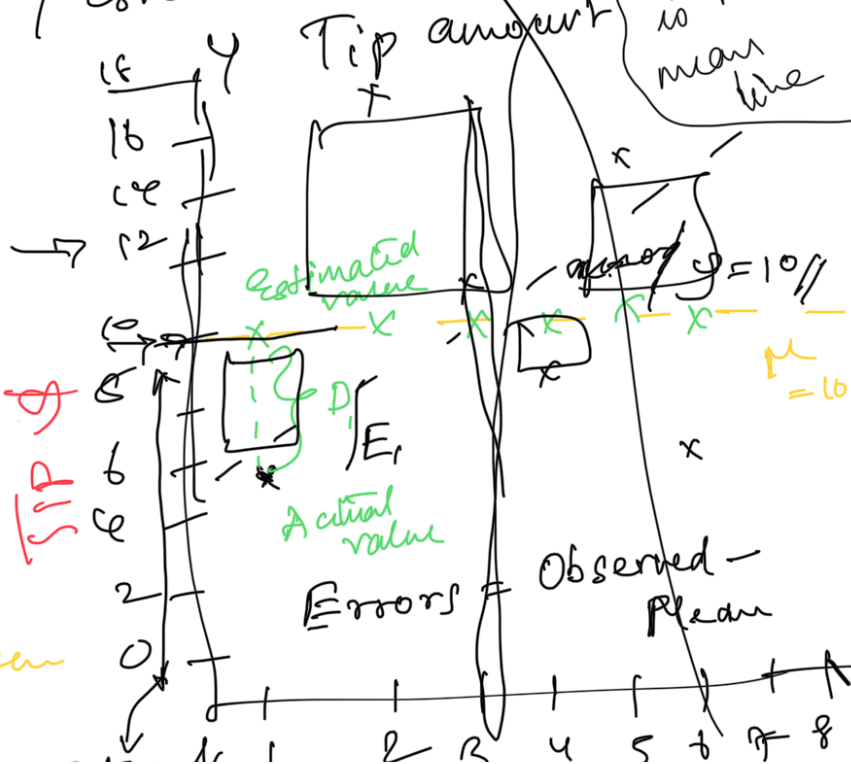 Tip amount
is
mean
line
Y
18
16
14
12
10
8
6
4
2
0
TIP $
Estimated
value
ȳ = 10
μ
= 10
D1
E1
Actual
value
Errors = Observed -
Mean
1 2 3 4 5 6 7 8